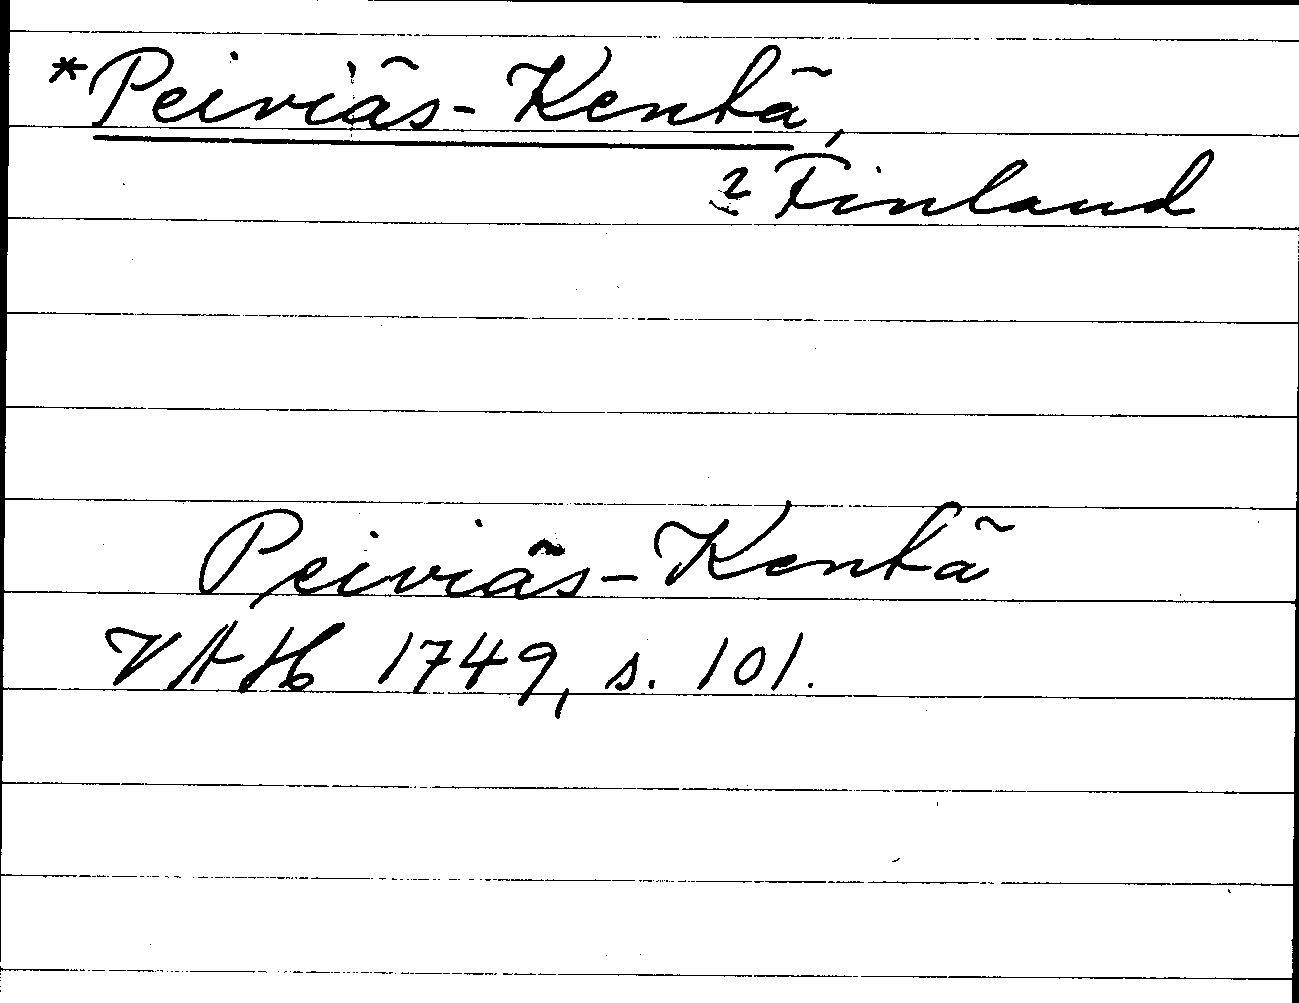 *Peiviäs-Kentä,
? Finland
Peiviäs-Kentä
VAH 1749, s. 101.